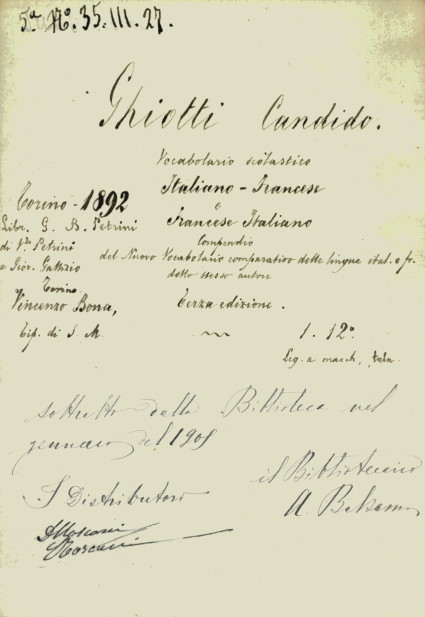 5.a N.o 35. III. 27.
Ghiotti Candido.
Vocabolario scolastico
Italiano - Francese
e
Francese Italiano
Compendio
del Nuovo Vocabolario comparativo delle lingue ital. e fr.
dello stesso autore
Terza edizione.
Torino - 1892
Libr. G. B. Petrini
di V.o Petrini
e Giov. Gallizio
Torino.
Vincenzo Bona,
Tip. di S. M.
1. 12.o
Leg. a macch, tela
sottratto dalla Biblioteca nel
gennaio del 1905
I Distributori
il Bibliotecario
A